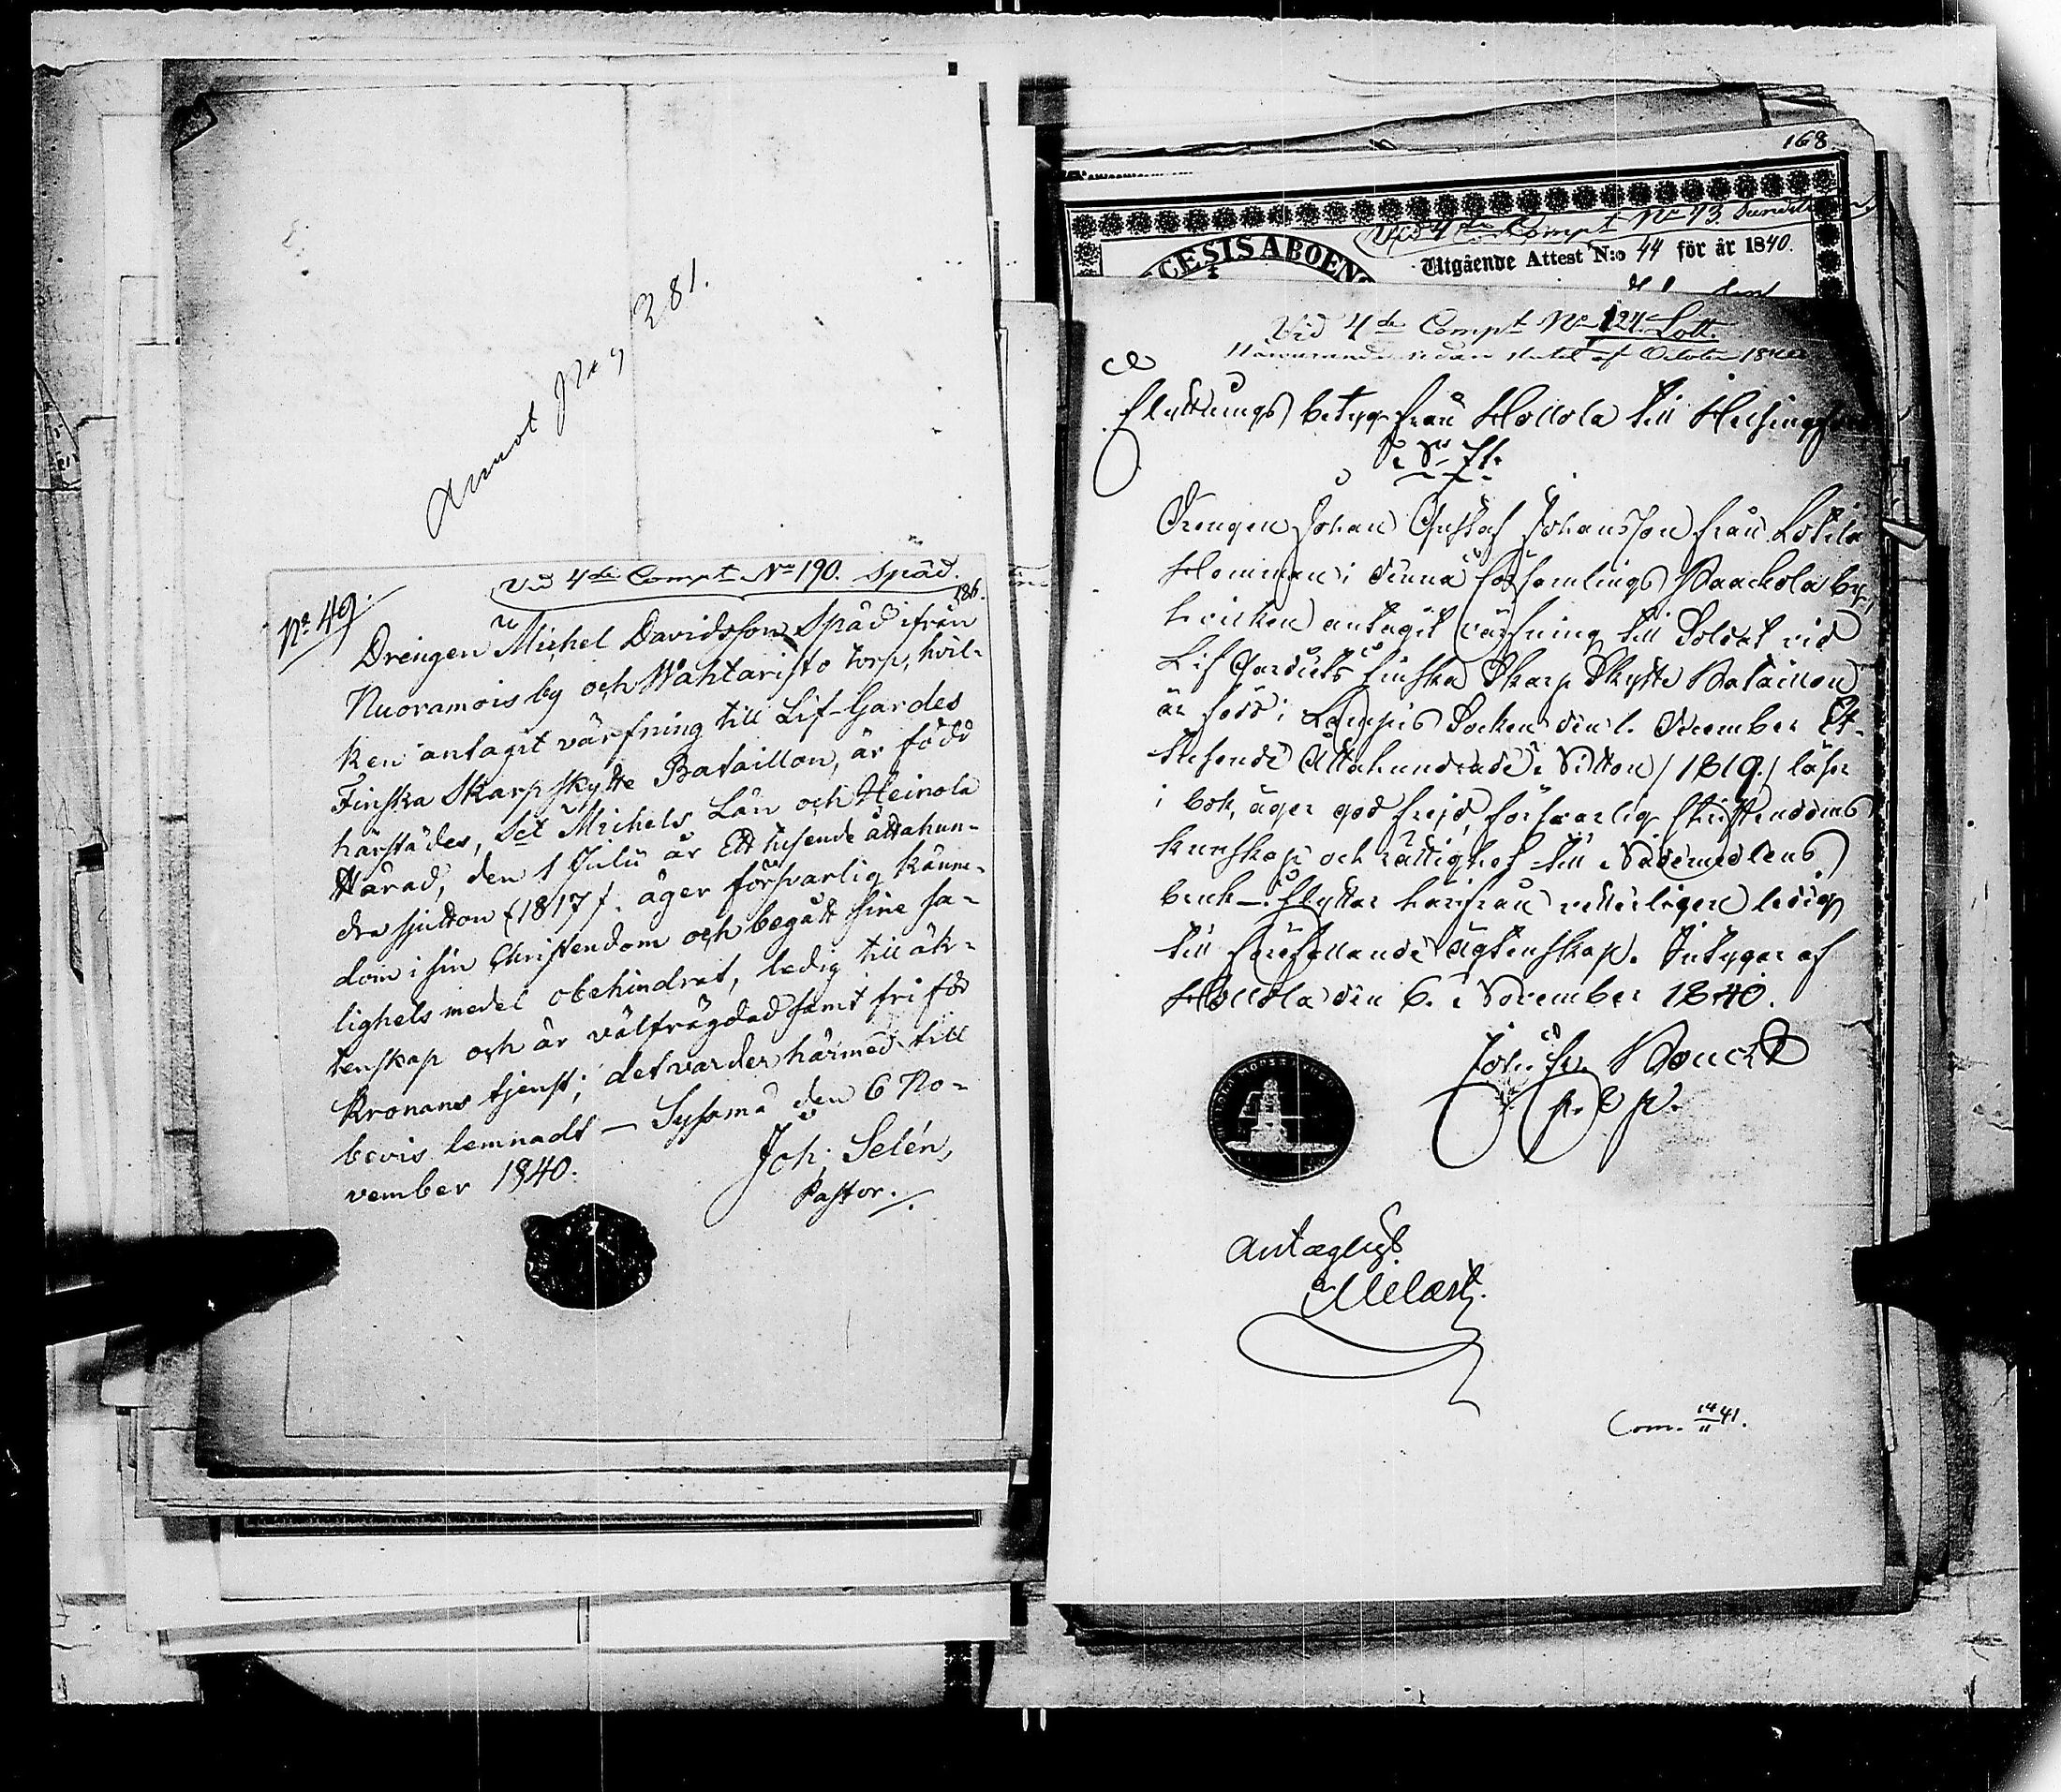 381.
Vid 4de Compt No 190. Späd.
186.
No 49.
Drengen Michel Davidsson Späd ifrån
Nuoramois by och Wåhtaristo torp, hvil-
ken antagit värfning till Lif-Gardes
Finska Skarpskytte Bataillon, är född
härstädes, Sct Michels Län och Heinola
Härad, den 1 Julii år Ett tusende åttahun-
dra sjutton (1817). äger försvarlig känne-
dom i sin Christendom och begått sine sa-
lighets medel obehindrat, ledig till äk-
tenskap och är välfrägdad samt fri för
Kronans tjenst; det varder härmed till
bevis lemnadt — Sysmä den 6 No-
vember 1840.
Joh; Selén,
Pastor.
168
Vid 4de Compt No 43.
CESIS ABOEN
Utgående Attest N:o 44 för år 1840.
Vid 4de Compt No 124 Lott.
Närvarande sedan slutet af October 1840
Flyttnings betyg från Hollola till Helsingfors
Drengen Johan Gustaf Johansson från Lotila
Hemman i denna församlings Paackola by,
hvilken antagit värfning till Soldat vid
Lif Gardets Finska Skarp Skytte Bataillon
är född i Lampis Socken den 1. December Et-
tusende Åttahundrade Nitton /1819./ läser
i bok, äger god frejd, försvarlig Christendoms
kunskap och rättighet till Nådemedlens
bruk—. Flyttar härifrån vetterligen ledig
till förefallande ägtenskap. Intygar af
Hollola den 6. November 1840.
p. v p.
Antagligt
Melart.
Com. 14/11 41.